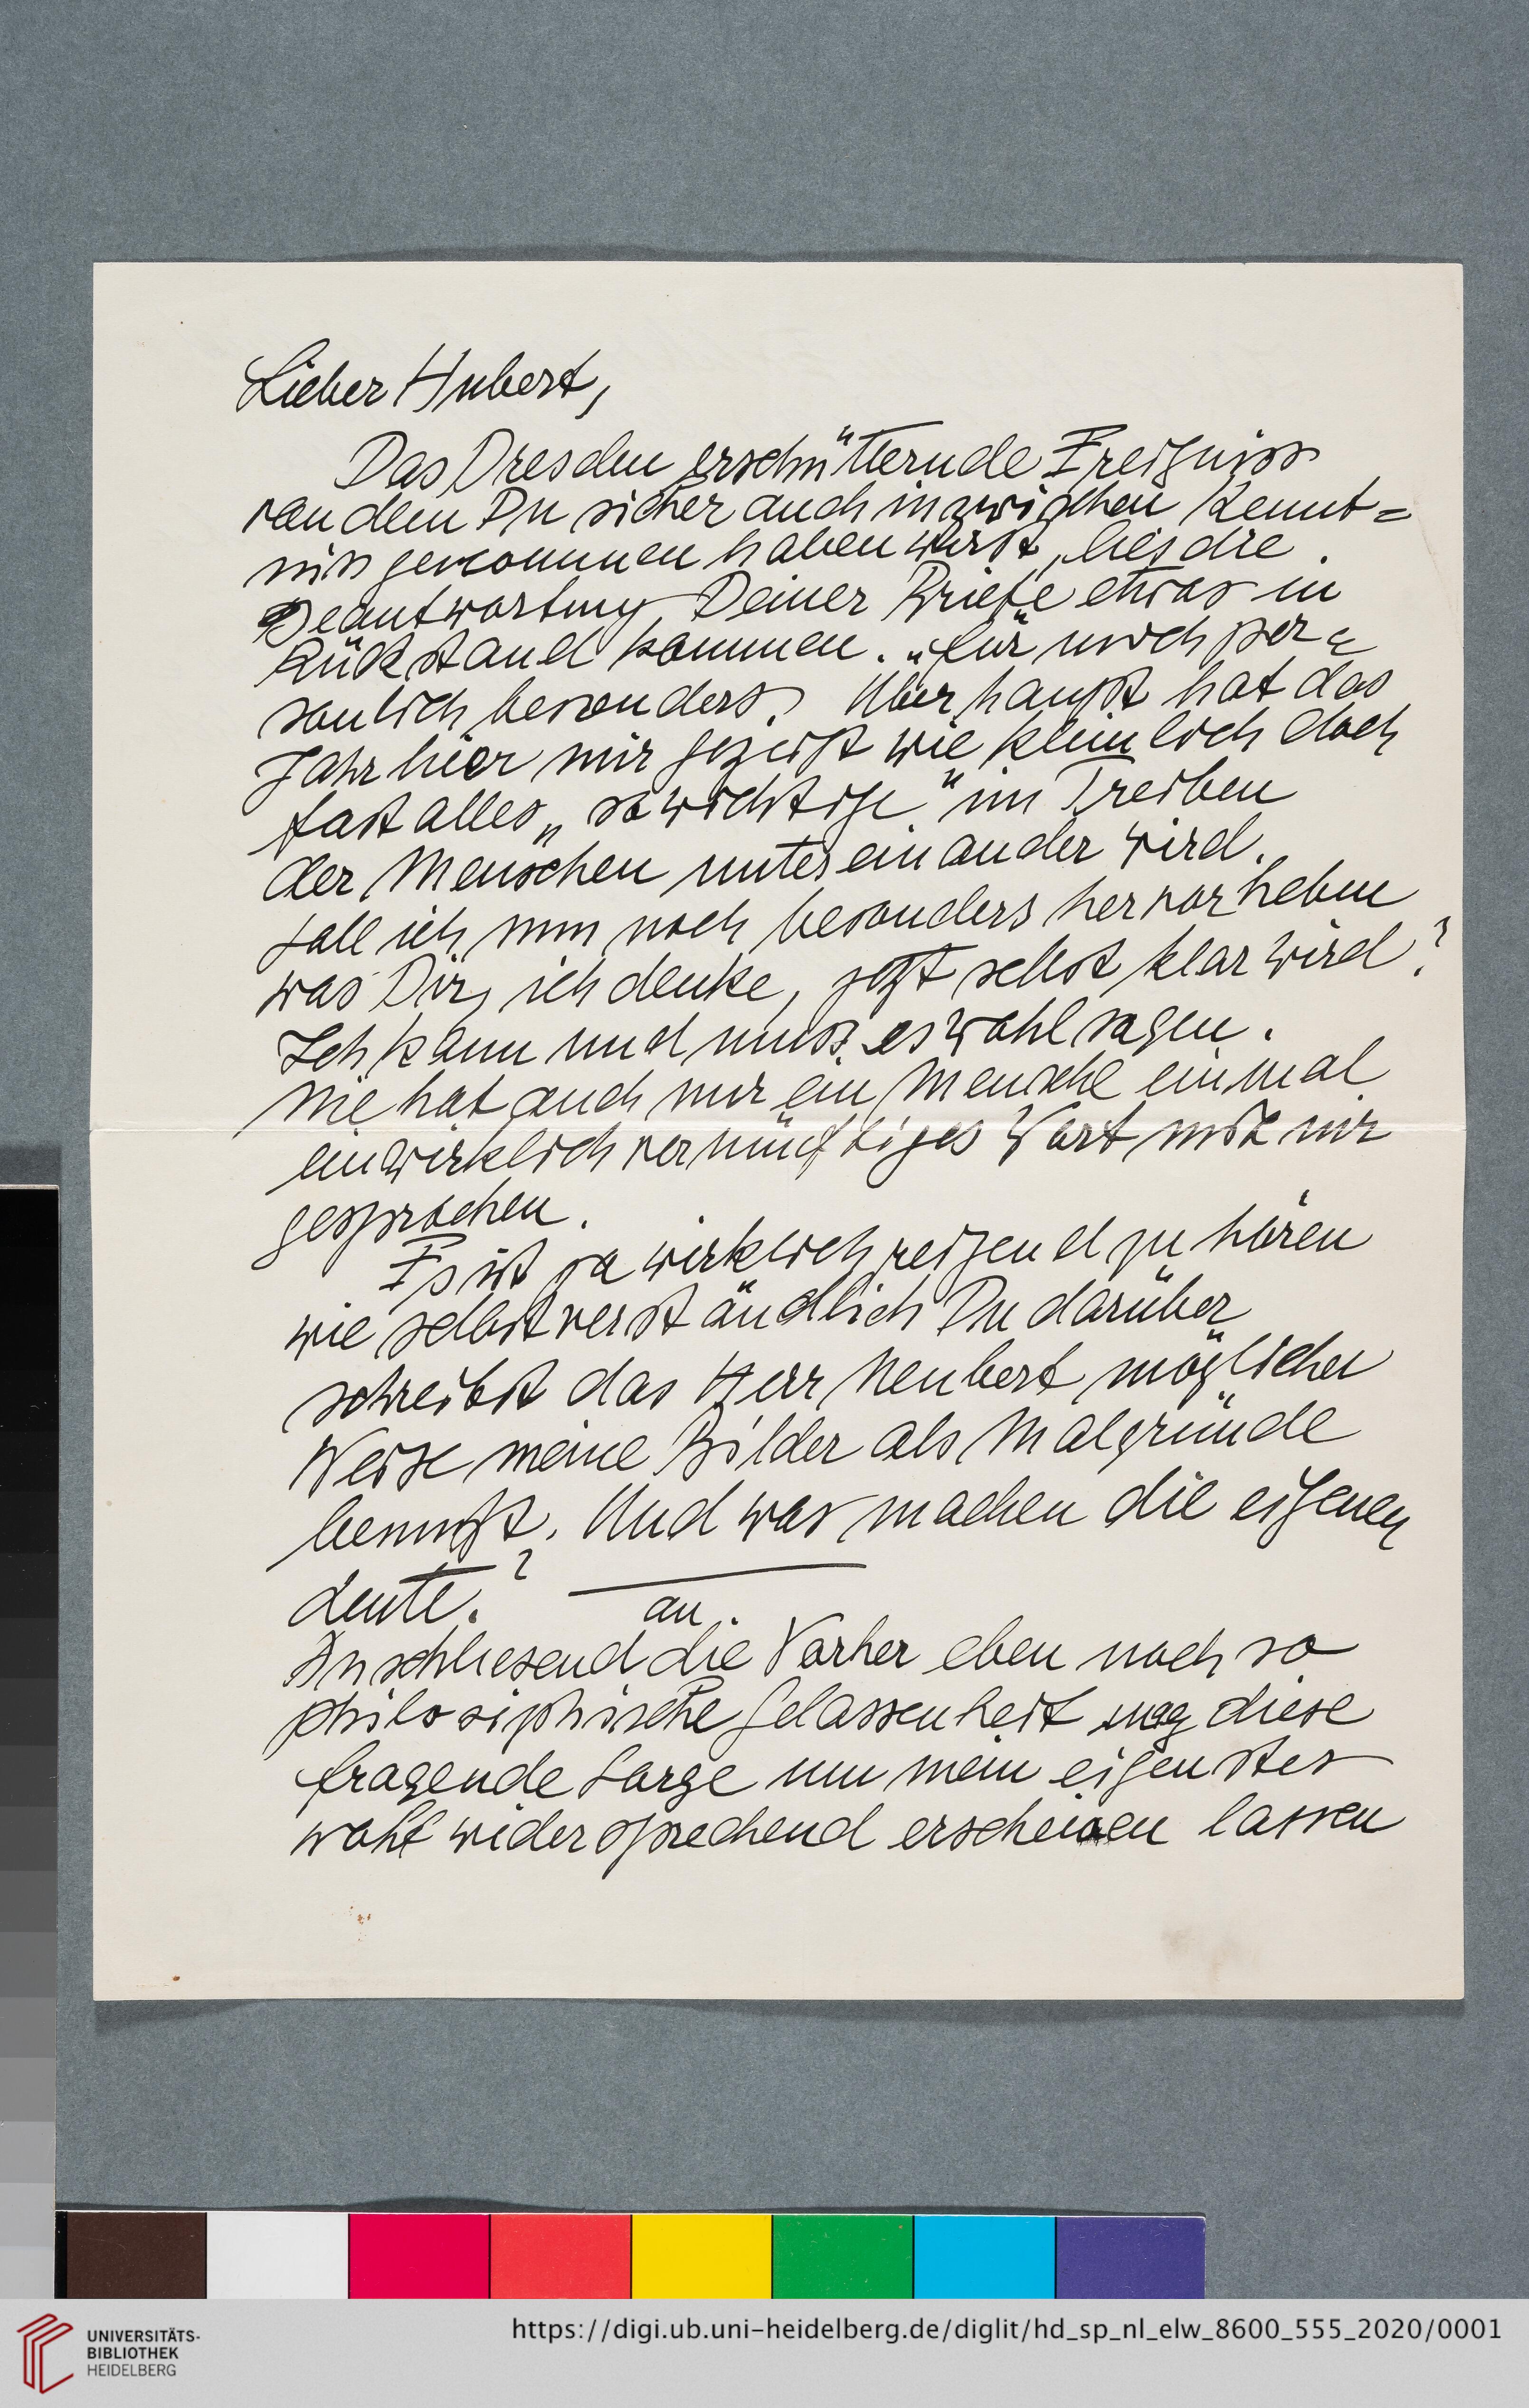 Lieber Hubert,
Das Dresden erschütternde Ereigniss
von dem Du sicher auch inzwischen Kennt=
niss genommen haben wirst, lies die
Beantwortung Deiner Briefe etwas in
Rückstand kommen. „für mich per=
sonlich besonders. Überhaupt hat das
Jahr hier mir gezeigt wie kleinlich doch
fast alles „so wichtige" im Treiben
der Menschen untereinander wird.
Soll ich nun noch besonders hervorheben
was Dir, ich denke, jetzt selbst klar wird?
Ich kann und muss es wohl sagen.
Nie hat auch nur ein Mensch einmal
ein wirklich vernünftiges Wort mit mir
gesprochen.
Es ist ja wirklich reizend zu hören
wie selbstverständlich Du darüber
schreibst das Herr Neubert möglicher
Weise meine Bilder als Malgründe
benutzt. Und was machen die eigenen
Leute?
an
Anschliesend die Vorher eben noch so
philosiphische Gelassenheit mag diese
fragende Sorge um mein eigenstes
wohl widersprechend erscheinen lassen
UNIVERSITÄTS-
BIBLIOTHEK
HEIDELBERG
https://digi.ub.uni-heidelberg.de/diglit/hd_sp_nl_elw_8600_555_2020/0001